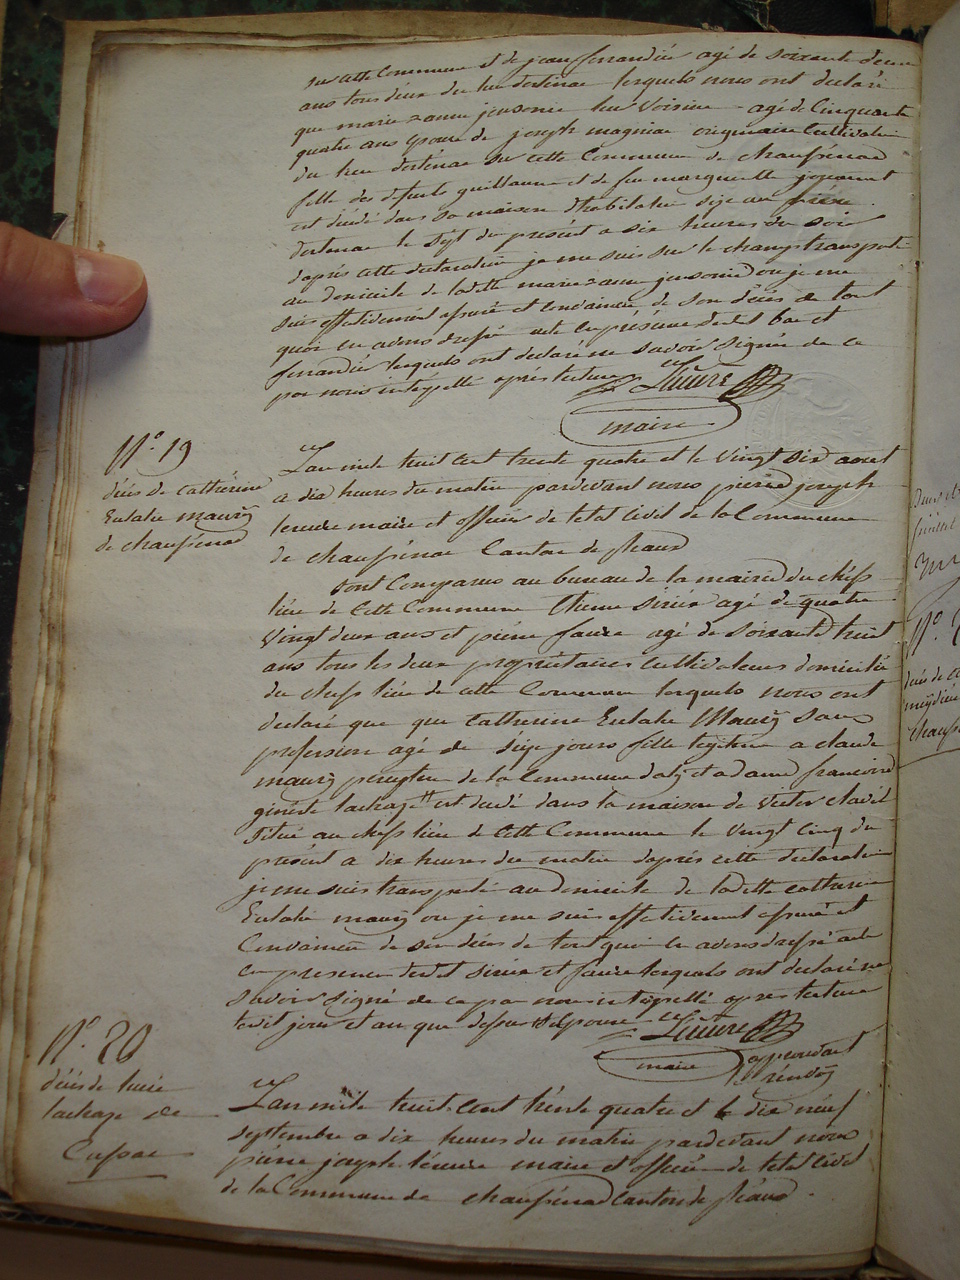 sur cette Commune et de jean ferrandié agé de soixante deux
ans tous deux du lieu destenac lesquels nous ont declaré
que marie anne jensonie leur Voisine agé de Cinquante
quatre ans epouse de joseph magniac originaire Cultivateur
du lieu destenac sur cette Commune de chaussénac
fille des defunts guillaume et de feu marguerite
est décédé dans sa maison d'habitation size au
destenac le sept du présent a six heures du soir
d'aprés cette declaration je me suis sur le champ transporté
au domicile de ladite marie anne jensonie ou je me
suis effectivement assuré et convaincu de son décès de tout
quoi en avons dressé acte en présence desdits bac et
ferrandié lesquels ont déclaré ne savoir signer de ce
par nous intérpellé aprés lecture
maire
N.º 19
décés de cathérine
Eulalie maury
de chaussénac
L'an mile huit cent trente quatre et le vingt six aout
a dix heures du matin pardevant nous pierre joseph
maire et officier de letat Civil de la Commune
de chaussénac Canton de pleaux
sont Comparus au bureau de la mairie du chef
lieu de Cette Commune Etienne agé de quatre
Vingt deux ans et pierre faure agé de soixante huit
ans tous les deux propriétaires cultivateurs domicilié
du chef lieu de cette Commune lesquels nous ont
declaré que que Catherine Eulalie Maury sans
profession agé de jours fille legitime a claude
maury percepteur de la Commune dally et a dame francoise
lachaze est décédé dans la maison de Victor
Située au chef lieu de Cette Commune le vingt Cinq du
présent a dix heures du matin d'aprés cette declaration
je me suis transporté au domicile de ladite catherine
Eulalie maury ou je me suis effectivement assuré et
Convaincu de son décès de tout quoi en avons dressé acte
en presence desdit et faure lesquels ont declaré ne
savoir signé de ce par nous intérpellé apres lecture
ledit jour et an que dessus
maire
approuvant
N.º 20
décés de
lachaze de
Cussac
L'an mile huit Cent trente quatre et le dix neuf
septembre a dix heures du matin pardevant nous
pierre joseph maire et officier de letat Civil
de la Commune de chaussénac Canton de pleaux